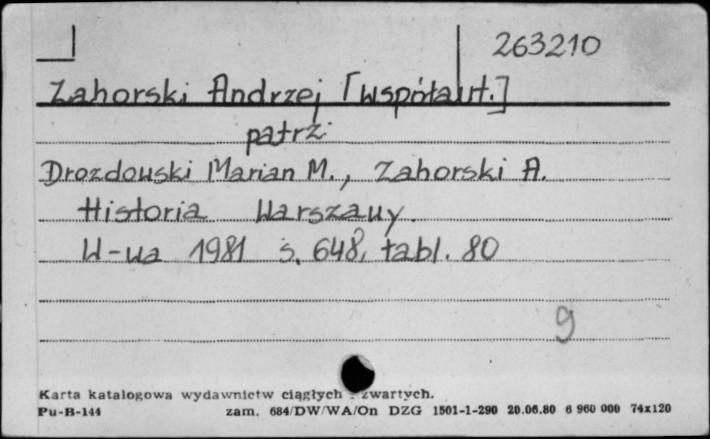 263210
Zahorski Andrzej [współaut.]
patrz
Drozdowski Marian M., Zahorski A.
Historia Warszawy.
W-wa 1981 s. 648, tabl. 80
9
Karta katalogowa wydawnictw ciągłych - zwartych.
Pu-B-144 zam. 684/DW/WA/On DZG 1501-1-290 20.06.80 6 960 000 74x120